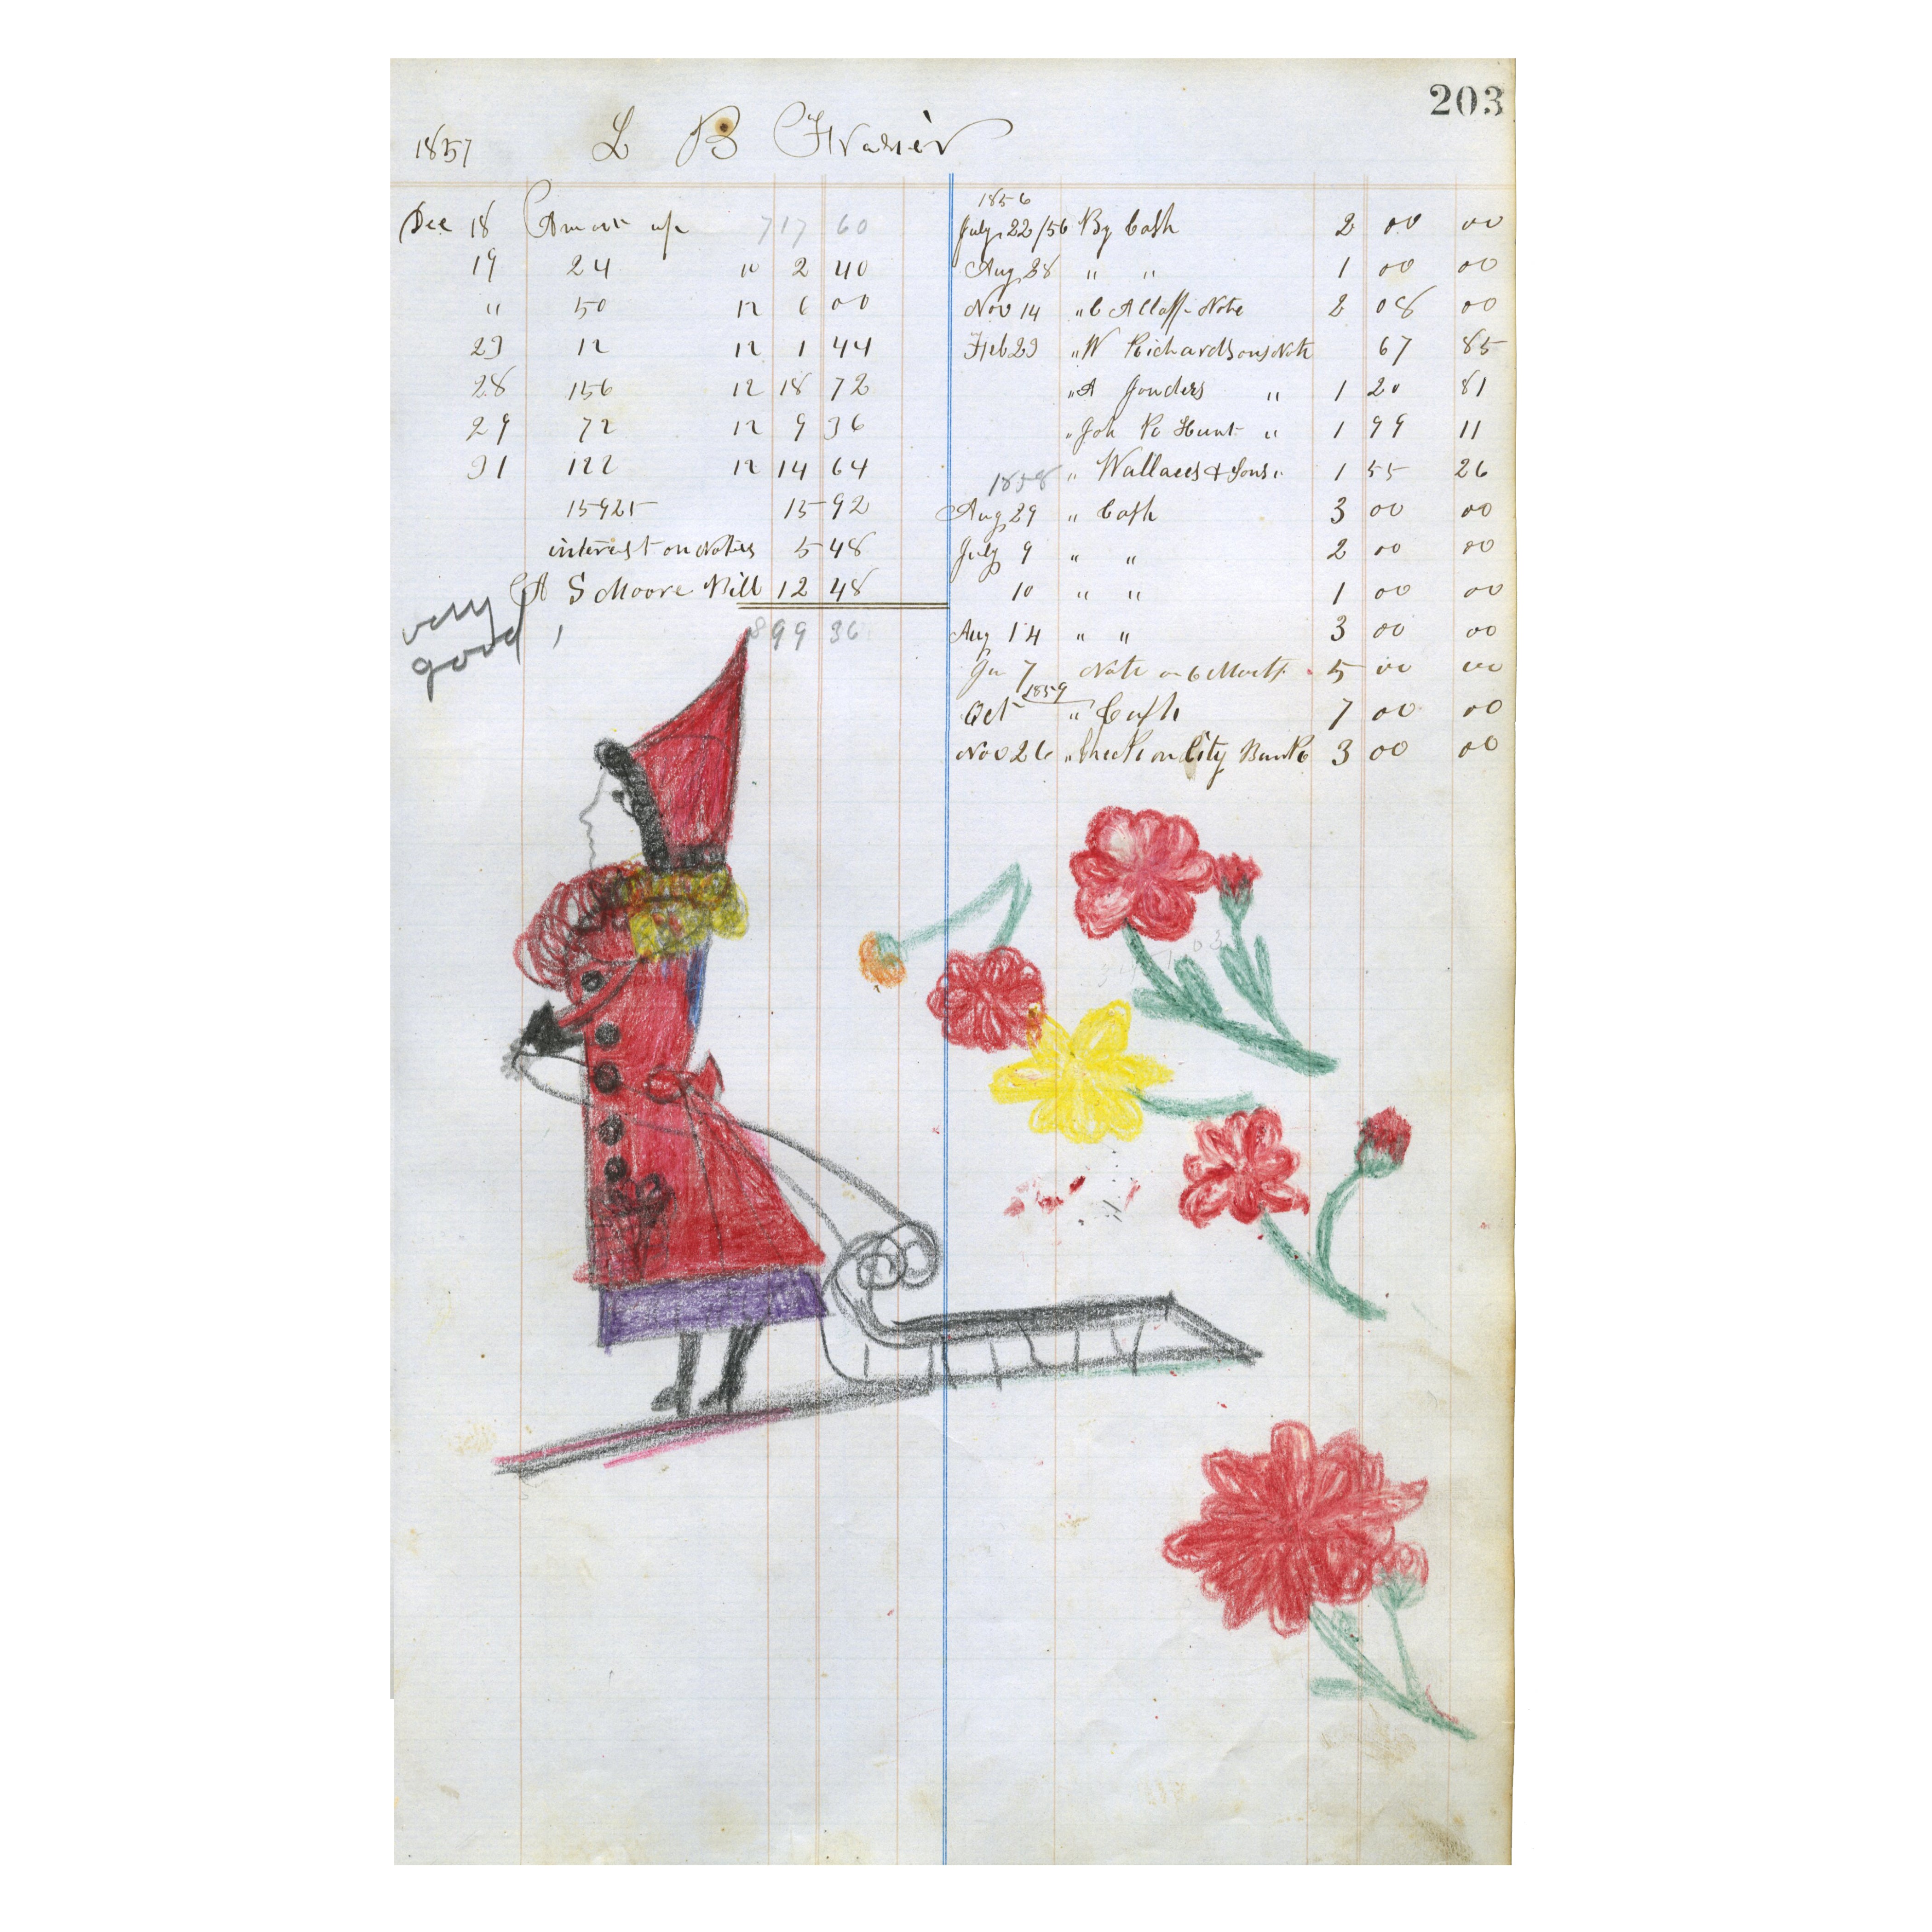 203
1857 L B Frasier
Dec 18 Amount up 717 60
19 24 10 2 40
" 50 12 6 00
23 12 12 1 44
28 156 12 18 72
29 72 12 9 36
31 122 12 14 64
15921 15 92
interest on Notes 5 48
A S Moore Bill 12 48
899 36
very
good
1856
July 22/56 By Cash 2 00 00
Aug 28 " " 1 00 00
Nov 14 " Note 2 08 00
Feb 23 " W Richardsons Note 67 85
" A Gonders " 1 20 81
" Joh Hunt " 1 99 11
1858 " Wallaces & Sons " 1 55 26
Aug 29 " Cash 3 00 00
July 9 " " 2 00 00
10 " " 1 00 00
Aug 14 " " 3 00 00
Ja 7 Note on 6 Month 5 00 00
1859
Oct " Cash 7 00 00
Nov 26 " Check on City Bank 3 00 00